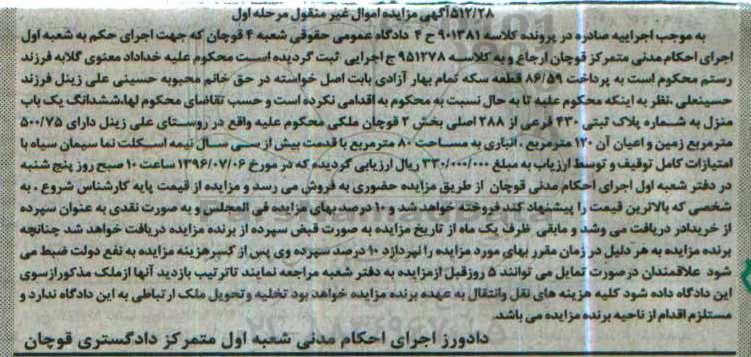 ۵۱۲/۲۸آگهی مزایده اموال غیر منقول مرحله اول
به موجب اجراییه صادره در پرونده کلاسه ۹۰۱۳۸۱ ح ۴ دادگاه عمومی حقوقی شعبه ۴ قوچان که جهت اجرای حکم به شعبه اول
اجرای احکام مدنی متمرکز قوچان ارجاع و به کلاسه ۹۵۱۲۷۸ ج اجرایی ثبت گردیده است محکوم علیه خداداد معنوی گلابه فرزند
رستم محکوم است به پرداخت ۸۶/۵۹ قطعه سکه تمام بهار آزادی بابت اصل خواسته در حق خانم محبوبه حسینی علی زینل فرزند
حسینعلی .نظر به اینکه محکوم علیه تا به حال نسبت به محکوم به اقدامی نکرده است و حسب تقاضای محکوم لها،ششدانگ یک باب
منزل به شماره پلاک ثبتی ۴۳۰ فرعی از ۲۸۸ اصلی بخش ۲ قوچان ملکی محکوم علیه واقع در روستای علی زینل دارای ۵۰۰/۷۵
مترمربع زمین و اعیان آن ۱۲۰ مترمربع ، انباری به مساحت ۸۰ مترمربع با قدمت بیش از سی سال نیمه اسکلت نما سیمان سیاه با
امتیازات کامل توقیف و توسط ارزیاب به مبلغ ۳۳۰/۰۰۰/۰۰۰ ریال ارزیابی گردیده که در مورخ ۱۳۹۶/۰۷/۰۶ ساعت ۱۰ صبح روز پنج شنبه
در دفتر شعبه اول اجرای احکام مدنی قوچان از طریق مزایده حضوری به فروش می رسد و مزایده از قیمت پایه کارشناس شروع ، به
شخصی که بالاترین قیمت را پیشنهاد کند فروخته خواهد شد و ۱۰ درصد بهای مزایده فی المجلس و به صورت نقدی به عنوان سپرده
از خریدار دریافت می شد و مابقی ظرف یک ماه از تاریخ مزایده به صورت قبض سپرده از برنده مزایده دریافت خواهد شد چنانچه
برنده مزایده به هر دلیل در زمان مقرر بهای مورد مزایده را نپردازد ۱۰ درصد سپرده وی پس از کسر هزینه مزایده به نفع دولت ضبط می
شود علاقمندان در صورت تمایل می توانند ۵ روزقبل ازمزایده به دفتر شعبه مراجعه نمایند تاترتیب بازدید آنها ازملک مذکورازسوی
این دادگاه داده شود کلیه هزینه های نقل وانتقال به عهده برنده مزایده خواهد بود تخلیه وتحویل ملک ارتباطی به این دادگاه ندارد و
مستلزم اقدام از ناحیه برنده مزایده می باشد.
دادورز اجرای احکام مدنی شعبه اول متمرکز دادگستری قوچان